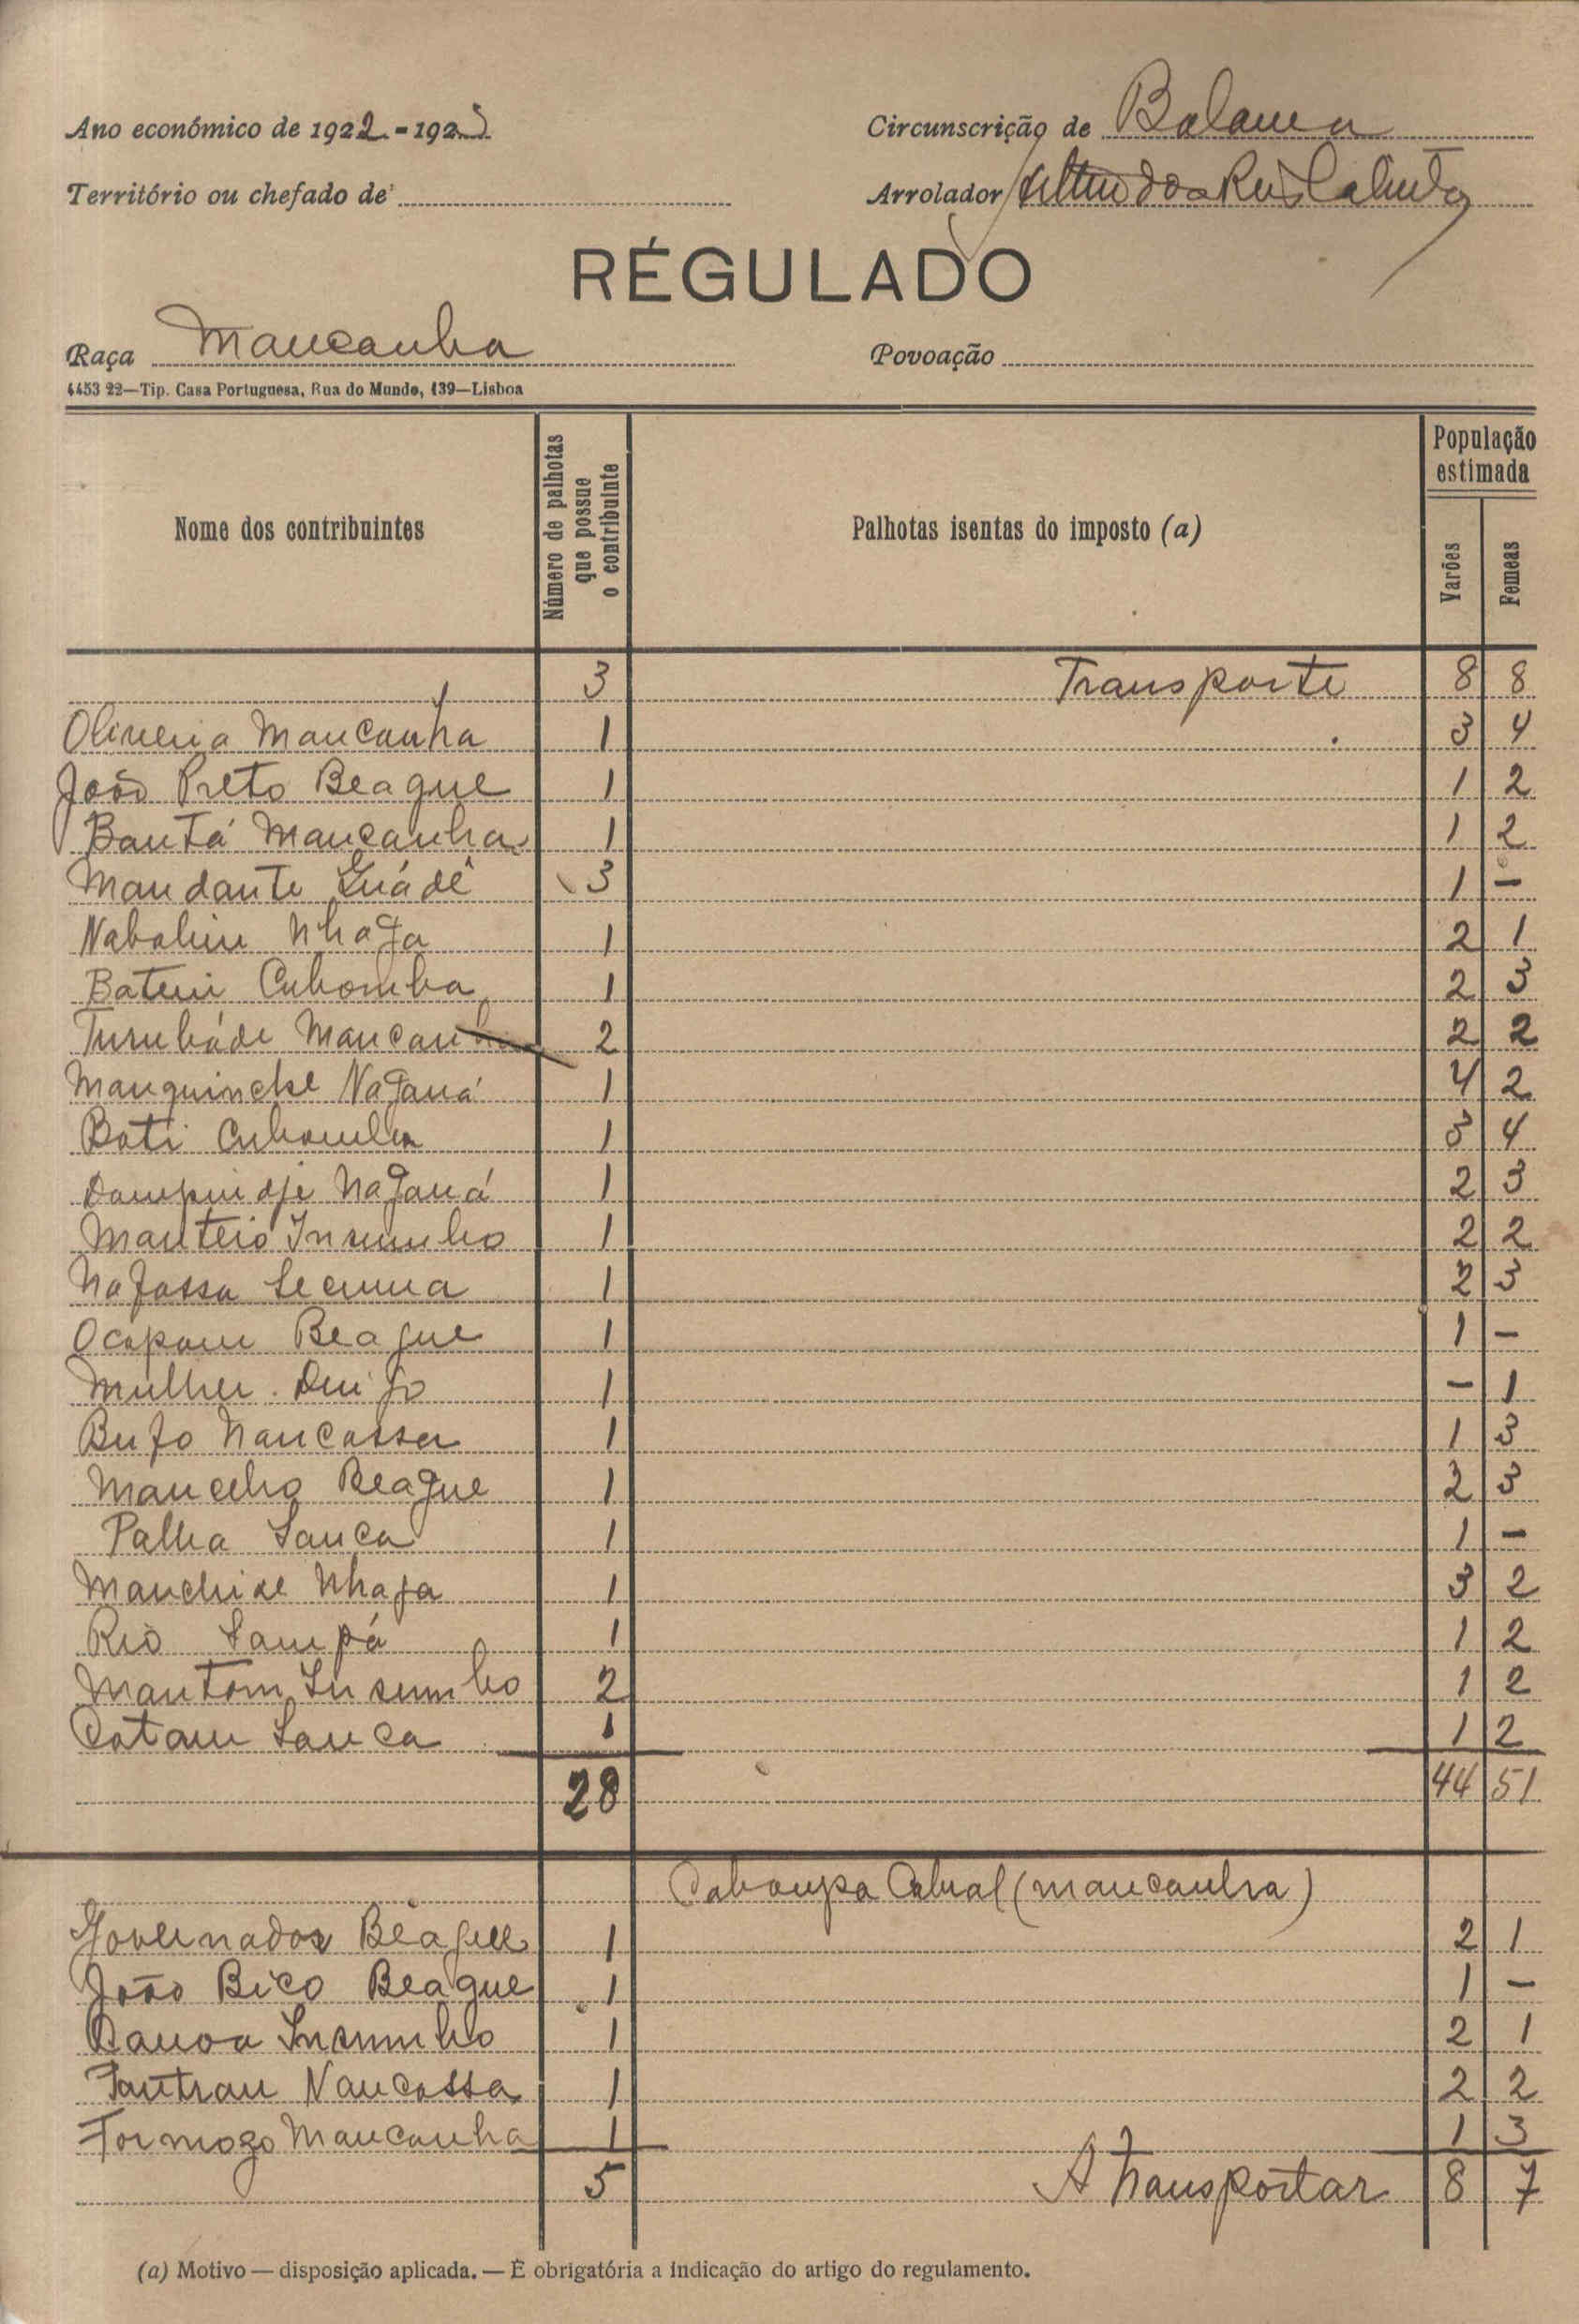 Ano económico de 1922-1923
Circunscrição de Bolama
Território ou chefado de
Arrolador
RÉGULADO
Raça Mancanha
Povoação
4453 22—Tip. Casa Portuguesa, Rua do Mundo, 139—Lisboa
Nome dos contribuintes
Número de palhotas que possue o contribuinte
Palhotas isentas do imposto (a)
População estimada
Varões
Femeas
3 Transporte 8 8
Oliveira Mancanha 1 3 4
João Preto Beague 1 1 2
Bantá Mancanha 1 1 2
Mandante 3 1 -
Nhaga 1 2 1
Cubomba 1 2 3
Mancanha 2 2 2
Naganá 1 4 2
Bati Cubomba 1 3 4
Naganá 1 2 3
Insumbo 1 2 2
1 2 3
Beague 1 1 -
Mulher 1 - 1
Bufo Nancassa 1 1 3
Beague 1 2 3
Palha Sanca 1 1 -
Nhaga 1 3 2
Rio Sampá 1 1 2
Mantom Insumbo 2 1 2
Catam Sanca 1 1 2
28 44 51
Cabral (mancanha)
Governador Beague 1 2 1
João Bico Beague 1 1 -
Insumbo 1 2 1
Nancassa 1 2 2
Formozo Mancanha 1 1 3
5 A transportar 8 7
(a) Motivo — disposição aplicada. — É obrigatória a indicação do artigo do regulamento.